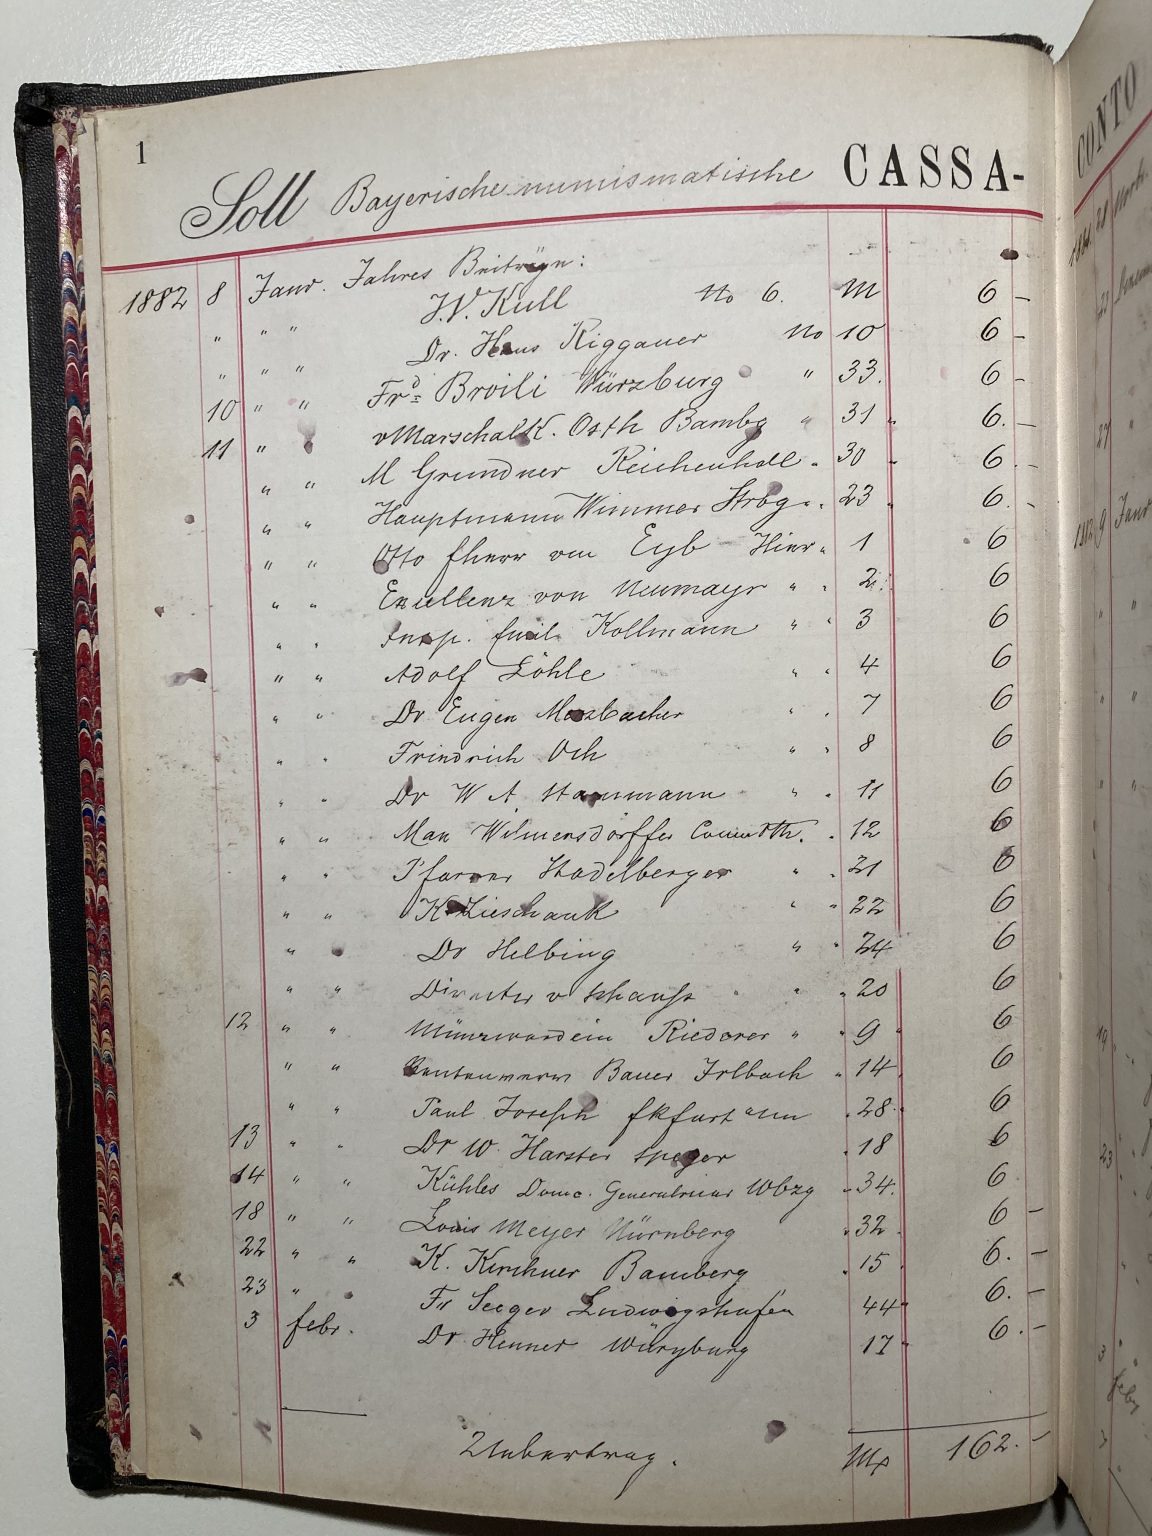 1
Soll Bayerische numismatische CASSA-
1882 8 Janr. Jahres Beiträge:
J.V. Kull No 6. M 6 –
" " " Dr. Hans Riggauer No 10 6 –
" " " Frd Broili Würzburg " 33. 6 –
10 " " v Marschalk. Osth Bambg " 31 " 6. –
11 " M Grundner Reichenhall " 30 " 6. –
" " Hauptmann Wimmer Strbg " " 23 " 6. –
" " Otto fherr von Eyb Hier " 1 6
" " Excellenz von Neumayr " " 2 6
" " Insp. Emil Kollmann " " 3 6
" " Adolf Löhle " " 4 6
" " Dr Eugen Merzbacher " " 7 6
" " Friedrich Och " " 8 6
" " Dr W A Stammann " " 11 6
" " Max Wilmersdörffer " 12 6
" " Pfarrer Stadelberger " " 21 6
" " K Zieschank " " 22 6
" Dr Helbing " " 24 6
" " Director v Schauss " " " 20 6
12 " " Münzwardein Riederer " " 9 " 6
" " Bauer Irlbach " 14 6
" " Paul Joseph fkfurt a/m " 28 " 6
13 " " Dr W. Harster Speyer " 18 6
14 " " Kühles Domc. Generalvicar Wbzg " 34. 6
18 " " Louis Meyer Nürnberg " 32. 6 –
22 " " K. Kirchner Bamberg " 15 6. –
23 " Fr Seeger Ludwigshafen 44 " 6. –
3 febr. Dr. Henner Würzburg 17 " 6. –
Uebertrag. 162. –
CONTO